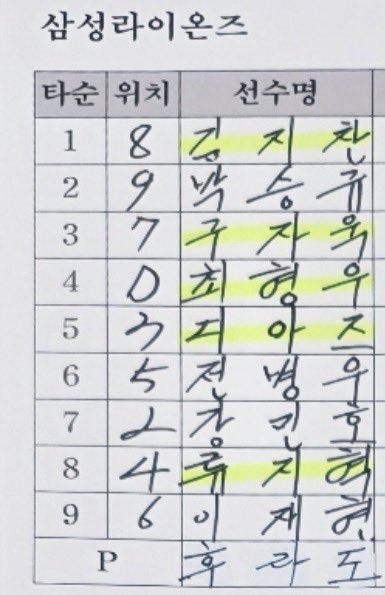 삼성라이온즈
타순 위치 선수명
1 8 김지찬
2 9 박승규
3 7 구자욱
4 D 최형우
5 3 디아즈
6 5 전병우
7 2 강민호
8 4 류지혁
9 6 이재현
P 후라도